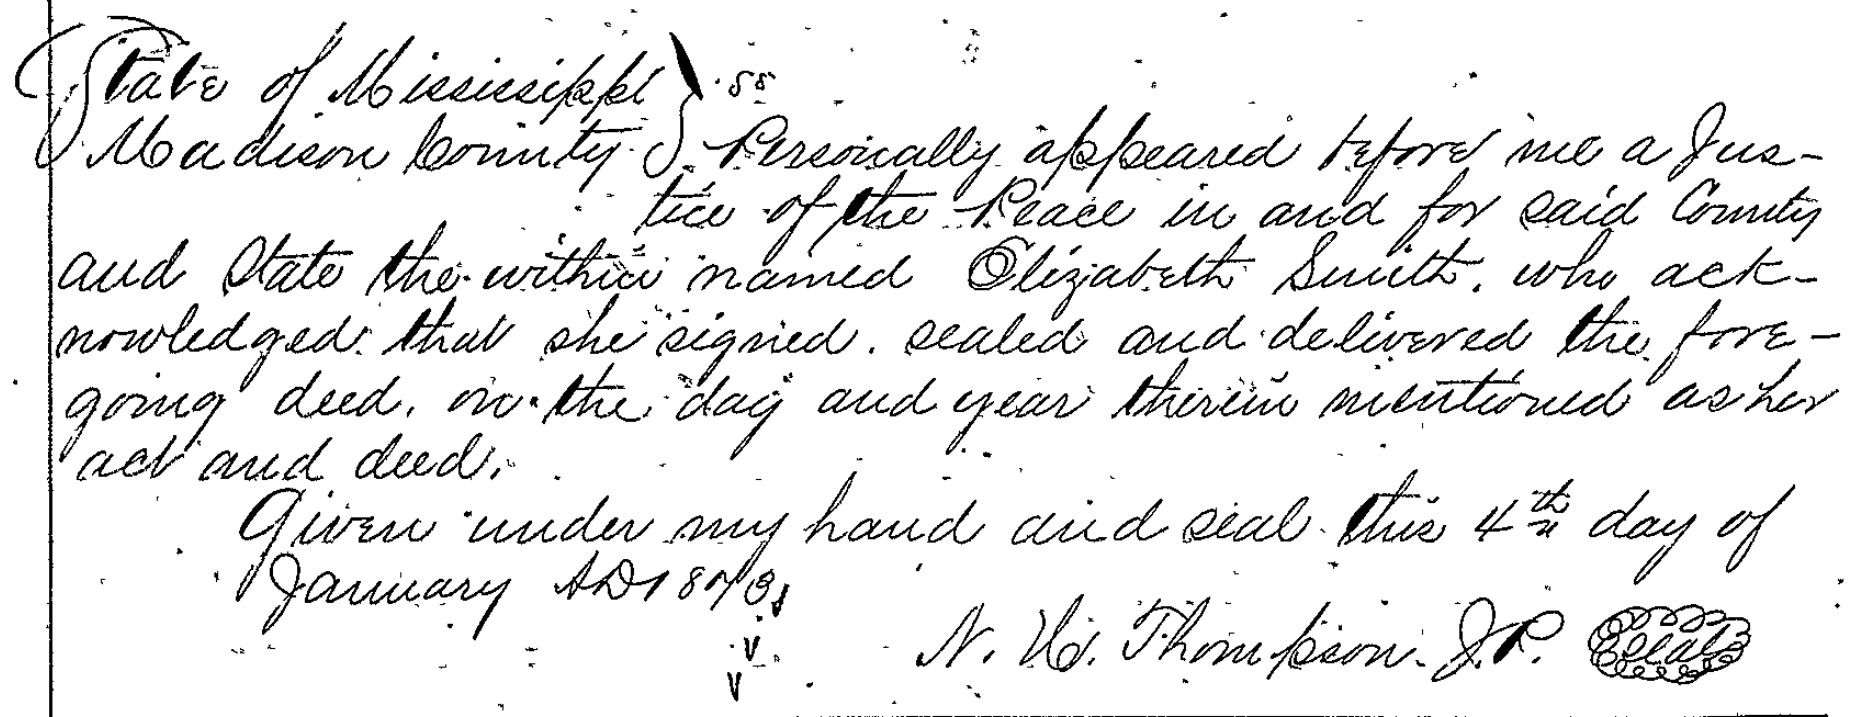 State of Mississippi } ss
Madison County } Personally appeared before me a Jus-
tice of the Peace in and for said County
and State the within named Elizabeth Smith, who ack-
nowledged that she signed, sealed and delivered the fore-
going deed, on the day and year therein mentioned as her
act and deed.
Given under my hand and seal this 4th day of
January AD 1873,
N. W. Thompson. J.P. Seal